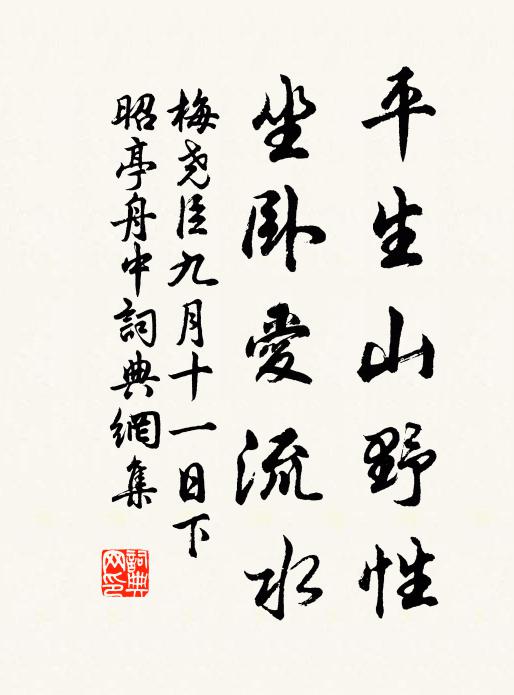 平生山野性
坐卧愛流水
梅堯臣九月十一日下
昭亭舟中詞典網集
詞典網印